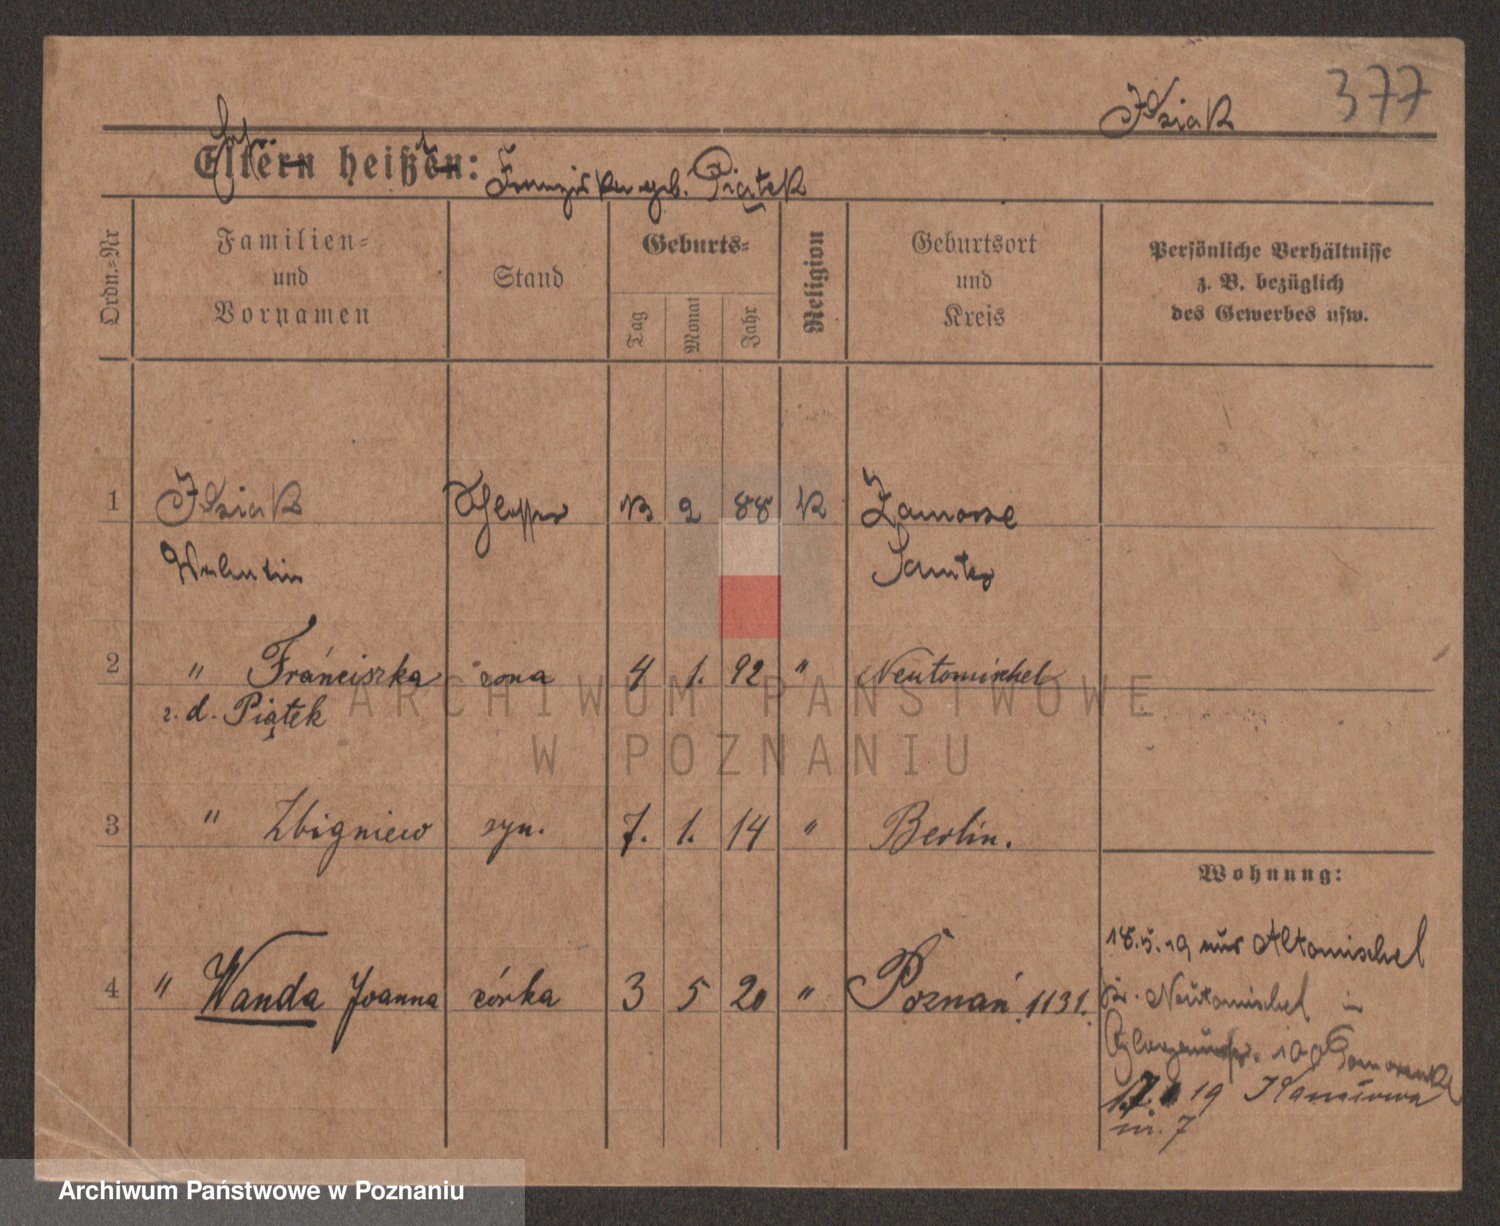 377
Eltern heißen: Franziska geb. Piątek
Ordn.-Nr
Familien-
und
Vornamen
Stand
Geburts-
Tag
Monat
Jahr
Religion
Geburtsort
und
Kreis
Persönliche Verhältnisse
z. B. bezüglich
des Gewerbes usw.
1
13 2 88 K
Valentin
Samter
2 " Franciszka żona 4 1. 92 " Neutomischel
z. d. Piątek
ARCHIWUM PAŃSTWOWE
W POZNANIU
3 " Zbigniew syn. 7. 1. 14 " Berlin.
Wohnung:
4 " Wanda Joanna córka 3 5 20 " Poznań 1131.
18.5.19 aus Altomischel
Kr. Neutomischel in
19
nr. 7
Archiwum Państwowe w Poznaniu